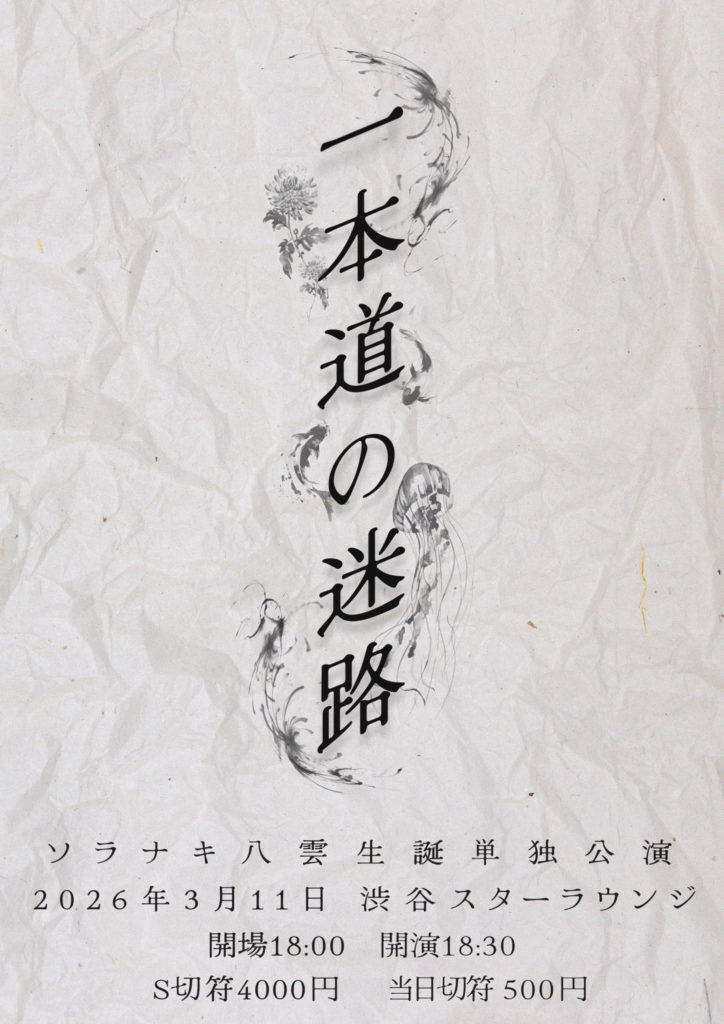 一本道の迷路
ソラナキ八雲生誕単独公演
2026年3月11日 渋谷スターラウンジ
開場18:00 開演18:30
S切符4000円 当日切符 500円